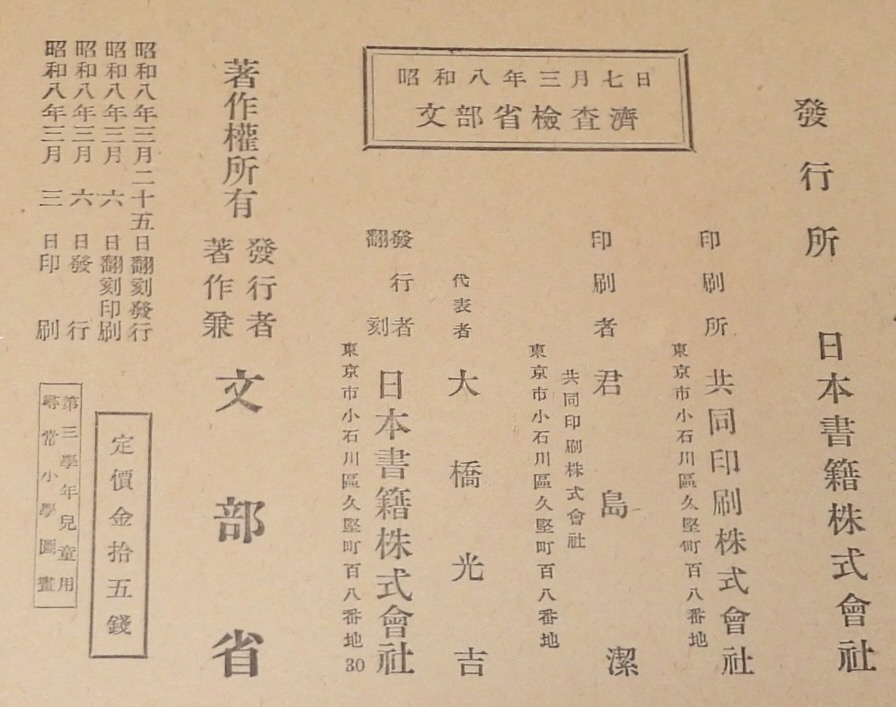 昭和八年三月 三 日印 刷
昭和八年三月 六 日發 行
昭和八年三月 六 日翻刻印刷
昭和八年三月二十五日翻刻發行
尋常小學圖畫
第三學年兒童用
定價金拾五錢
著作權所有
著作兼
發行者
文部省
昭和八年三月七日
文部省檢查濟
東京市小石川區久堅町百八番地
30
翻 刻
發行者
日本書籍株式會社
代表者 大橋光吉
東京市小石川區久堅町百八番地
共同印刷株式會社
印刷者 君島潔
東京市小石川區久堅町百八番地
印刷所 共同印刷株式會社
發行所 日本書籍株式會社